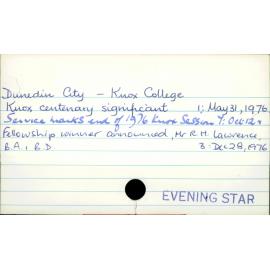 Dunedin City - Knox College
Knox centenary significant 1; May 31, 1976
Service marks end of 1976 Knox Session 7: Oct 12
Fellowship winner announced, Mr R.H. Lawrence,
B.A., B.D. 3 - Dec 28, 1976
EVENING STAR